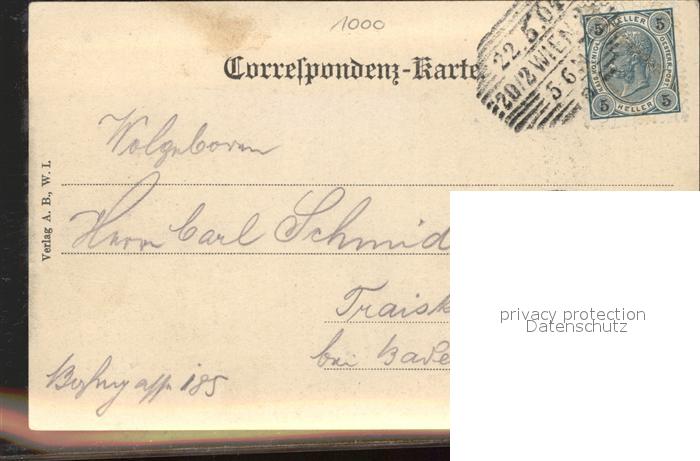 1000
Correspondenz-Karte
22.5.0
20/2 WIEN
5-6
5 HELLER 5
5 HELLER 5
Verlag A. B., W. I.
Wolgeboren
Herrn Carl Schmid
Traisk
bei Bade
185
privacy protection
Datenschutz